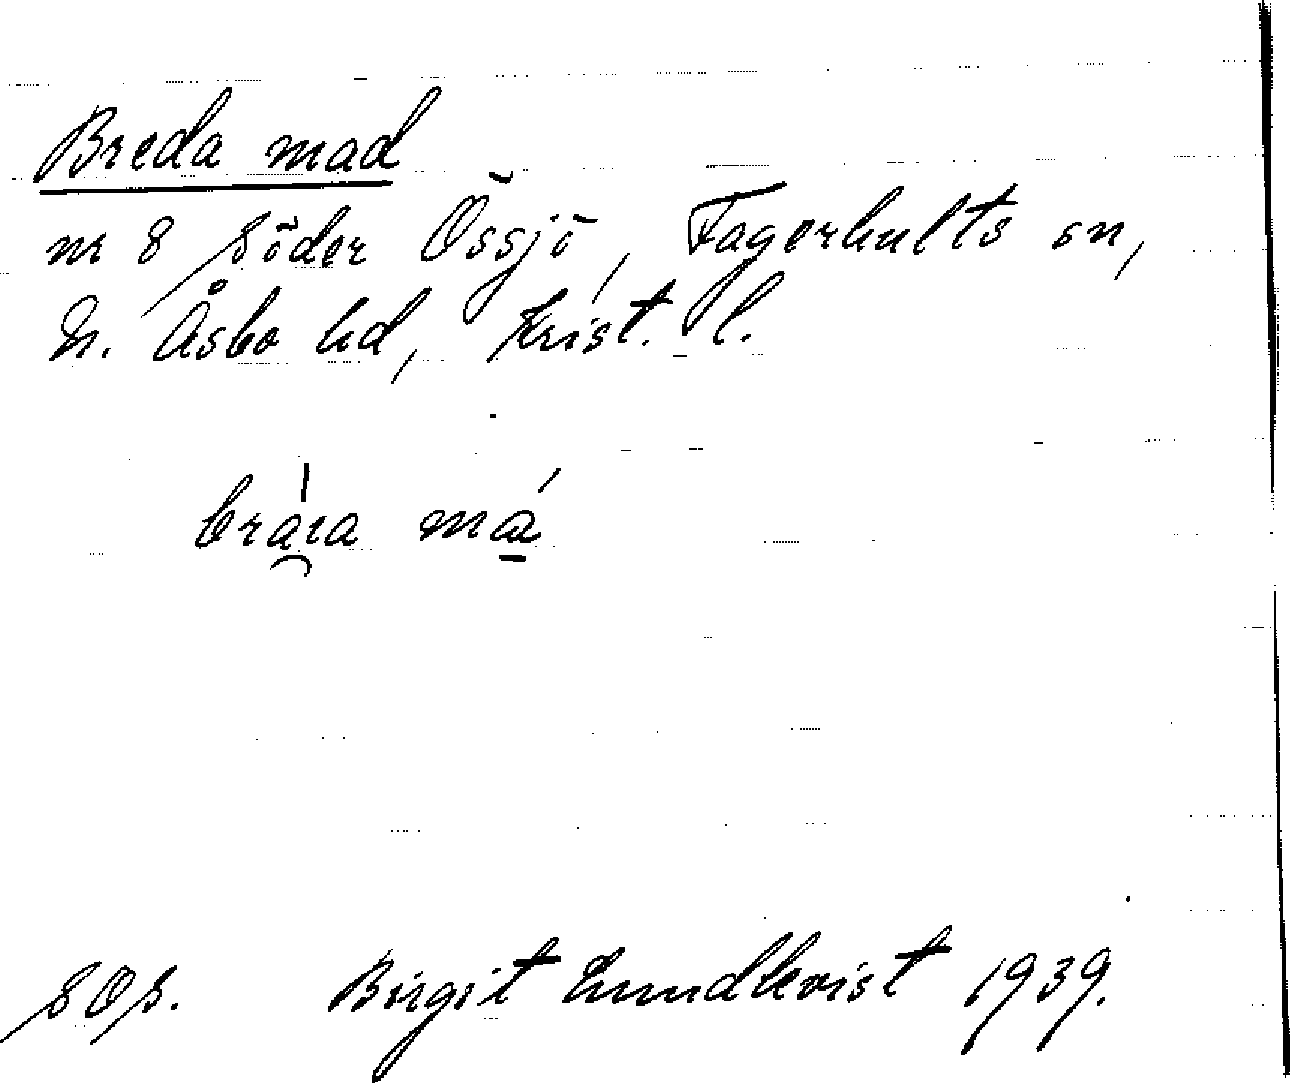 Breda mad
nr 8 Söder Össjö, Fagerhults sn,
N. Åsbo hd, Krist. l.
bràɪa má
SOS. Birgit Lundkvist 1939.